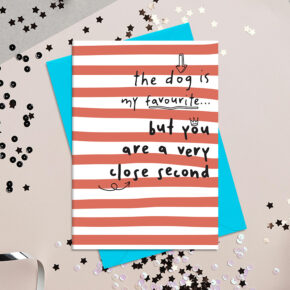 the dog is
my favourite...
but you
are a very
close second